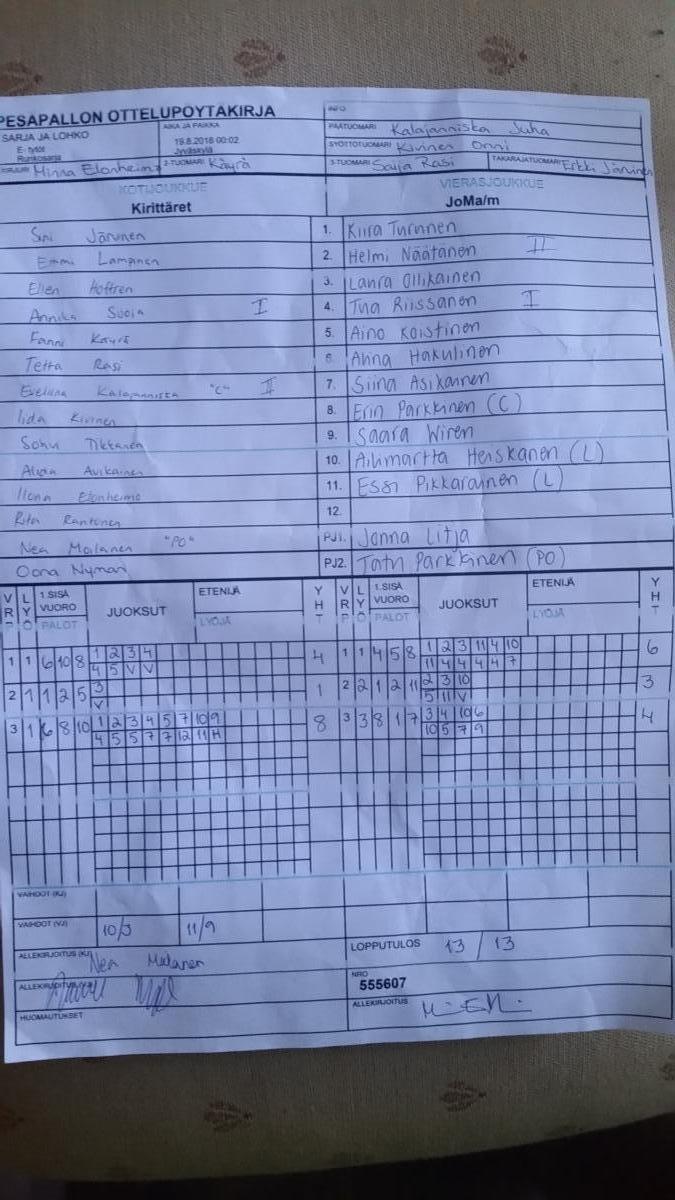 PESAPALLON OTTELUPÖYTÄKIRJA
INFO
SARJA JA LOHKO
E- tytöt
Runkosarja
AIKA JA PAIKKA
19.8.2018 00:02
Jyväskylä
PÄÄTUOMARI Kalajanniska Juha
SYÖTTÖTUOMARI Kivinen Onni
KIRJURI Minna Elonheimo
2-TUOMARI Käyrä
3-TUOMARI Sauja Rasi
TAKARAJATUOMARI Erkki Järvinen
KOTIJOUKKUE
Kirittäret
VIERASJOUKKUE
JoMa/m
Sini Järvinen 1. Kiira Turunnen
Emmi Lampinen 2. Helmi Näätänen II
Ellen Hoffren 3. Laura Ollikainen
Annika Suoja I 4. Tua Riissanen I
Fanni Käyrä 5. Aino Koistinen
Tetta Rasi 6. Anna Hakulinen
Eveliina Kalajanniska "C" II 7. Siina Asikainen
Iida Kivinen 8. Erin Parkkinen (C)
Sohvi Tikkanen 9. Saara Wiren
Alida Avikainen 10. Ailimartta Heiskanen (L)
Ilona Elonheimo 11. Essi Pikkarainen (L)
Rita Rantonen 12.
Nea Moilanen "PO" PJ1. Jonna Litja
Oona Nyman PJ2. Tatu Parkkinen (PO)
VRP LYÖ 1.SISÄ VUORO PALOT JUOKSUT ETENIJÄ LYÖJÄ YHT VRP LYÖ 1.SISÄ VUORO PALOT JUOKSUT ETENIJÄ LYÖJÄ YHT
1 1 6 10 8 1 2 3 4 4 1 1 4 5 8 1 2 3 11 4 10 6
4 5 V V 11 4 4 4 4 7
2 1 1 2 5 3 1 2 2 1 2 11 2 3 10 3
V 5 11 V
3 1 6 8 10 1 2 3 4 5 7 10 9 8 3 3 8 1 7 3 4 10 6 4
4 5 5 7 7 12 11 H 10 5 7 9
VAIHDOT (KJ)
VAIHDOT (VJ) 10/3 11/9
ALLEKIRJOITUS (KJ) Nea Moilanen
LOPPUTULOS 13 / 13
ALLEKIRJOITUS (VJ)
NRO
555607
HUOMAUTUKSET
ALLEKIRJOITUS